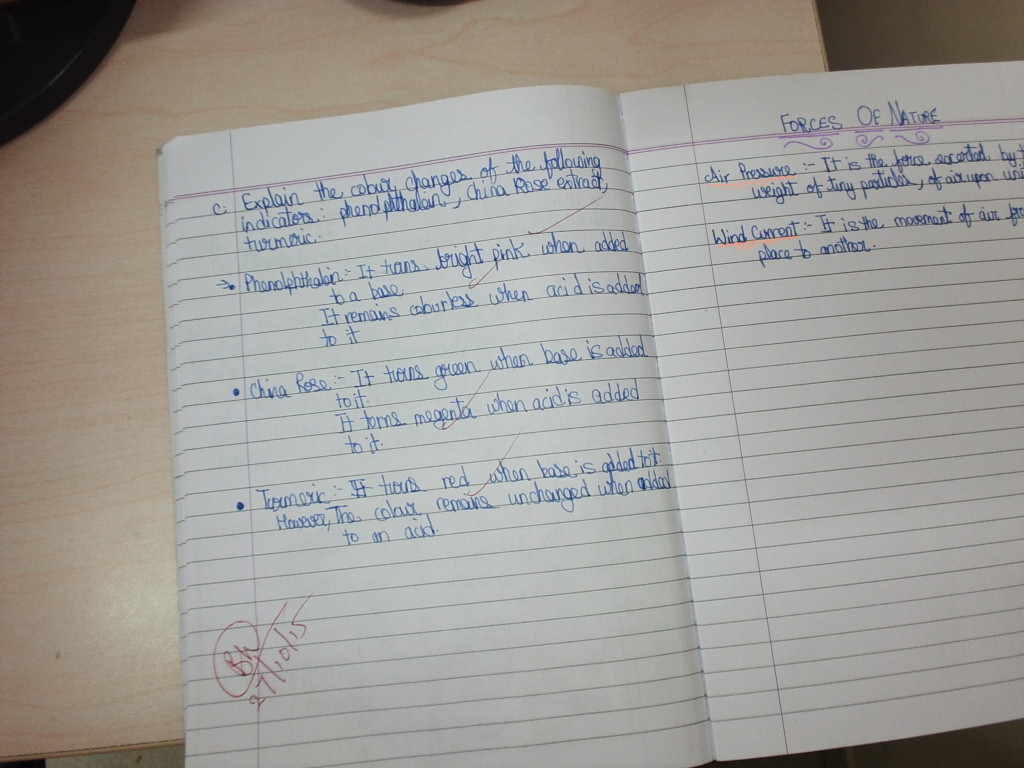 c. Explain the colour changes of the following
indicators: phenolphthalein, China Rose extract,
turmeric.
→ • Phenolphthalein:- It turns bright pink when added
to a base.
It remains colourless when acid is added
to it
• China Rose:- It turns green when base is added
to it.
It turns megenta when acid is added
to it.
• Turmeric:- It turns red when base is added to it.
However, The colour remains unchanged when added
to an acid.
27/10/15
FORCES OF NATURE
Air Pressure:- It is the force excerted by
weight of tiny particles, of air upon
Wind Current:- It is the movement of air
place to another.